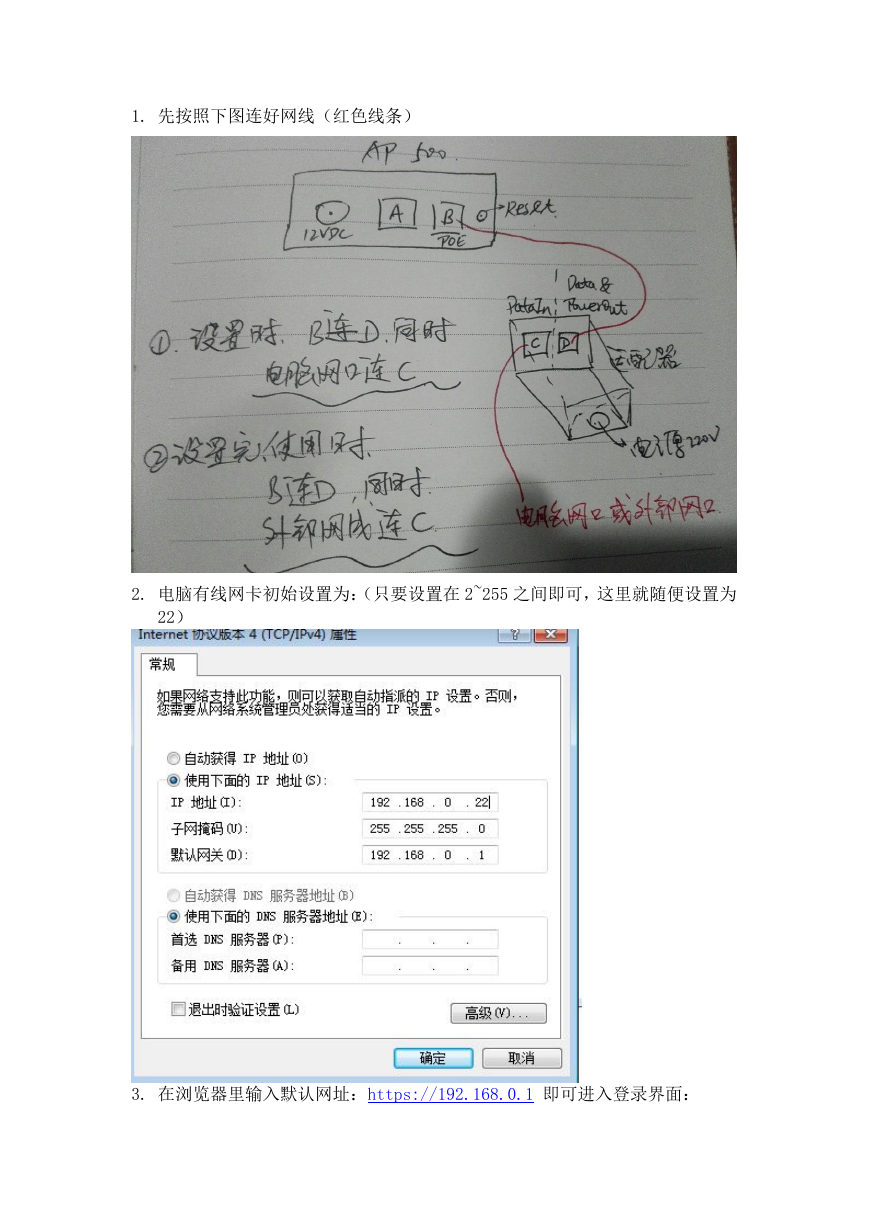 1. 先按照下图连好网线（红色线条）
AP 500.
12VDC
A
B
POE
Reset
Data In
Data &
Power Out
C
D
适配器
电源220V
①.设置时, B连D,同时
电脑网口连C
②设置完,使用时,
B连D,同时
外部网线连C.
电脑网口或外部网口
2. 电脑有线网卡初始设置为:（只要设置在 2~255 之间即可，这里就随便设置为
22）
Internet 协议版本 4 (TCP/IPv4) 属性
常规
如果网络支持此功能，则可以获取自动指派的 IP 设置。否则，
您需要从网络系统管理员处获得适当的 IP 设置。
自动获得 IP 地址(O)
使用下面的 IP 地址(S):
IP 地址(I): 192 .168 . 0 . 22
子网掩码(U): 255 .255 .255 . 0
默认网关(D): 192 .168 . 0 . 1
自动获得 DNS 服务器地址(B)
使用下面的 DNS 服务器地址(E):
首选 DNS 服务器(P): . . .
备用 DNS 服务器(A): . . .
退出时验证设置(L)
高级(V)...
确定 取消
3. 在浏览器里输入默认网址：https://192.168.0.1 即可进入登录界面：